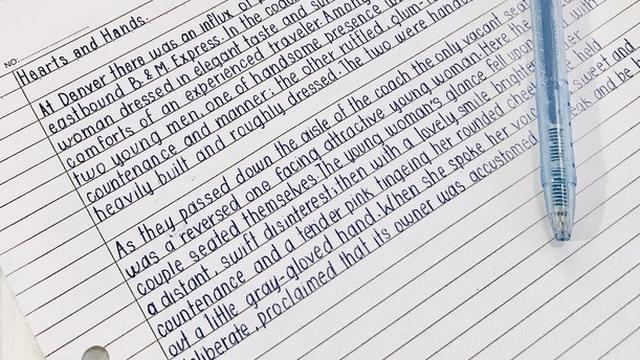 NO:
Hearts and Hands.
At Denver there was an influx of
eastbound B. & M Express. In the coach
woman dressed in elegant taste and
comforts of an experienced traveler. Among
two young men, one of handsome presence
countenance and manner; the other ruffled, glum-
heavily built and roughly dressed. The two were
As they passed down the aisle of the coach the only vacant seat
was a reversed one facing attractive young woman. Here the
couple seated themselves. The young woman's glance fell upon with
a distant, swift disinterest; then with a lovely smile
countenance and a tender pink tingeing her rounded she held
out a little gray-gloved hand. When she spoke her sweet and
deliberate, proclaimed that its owner was accustomed and be